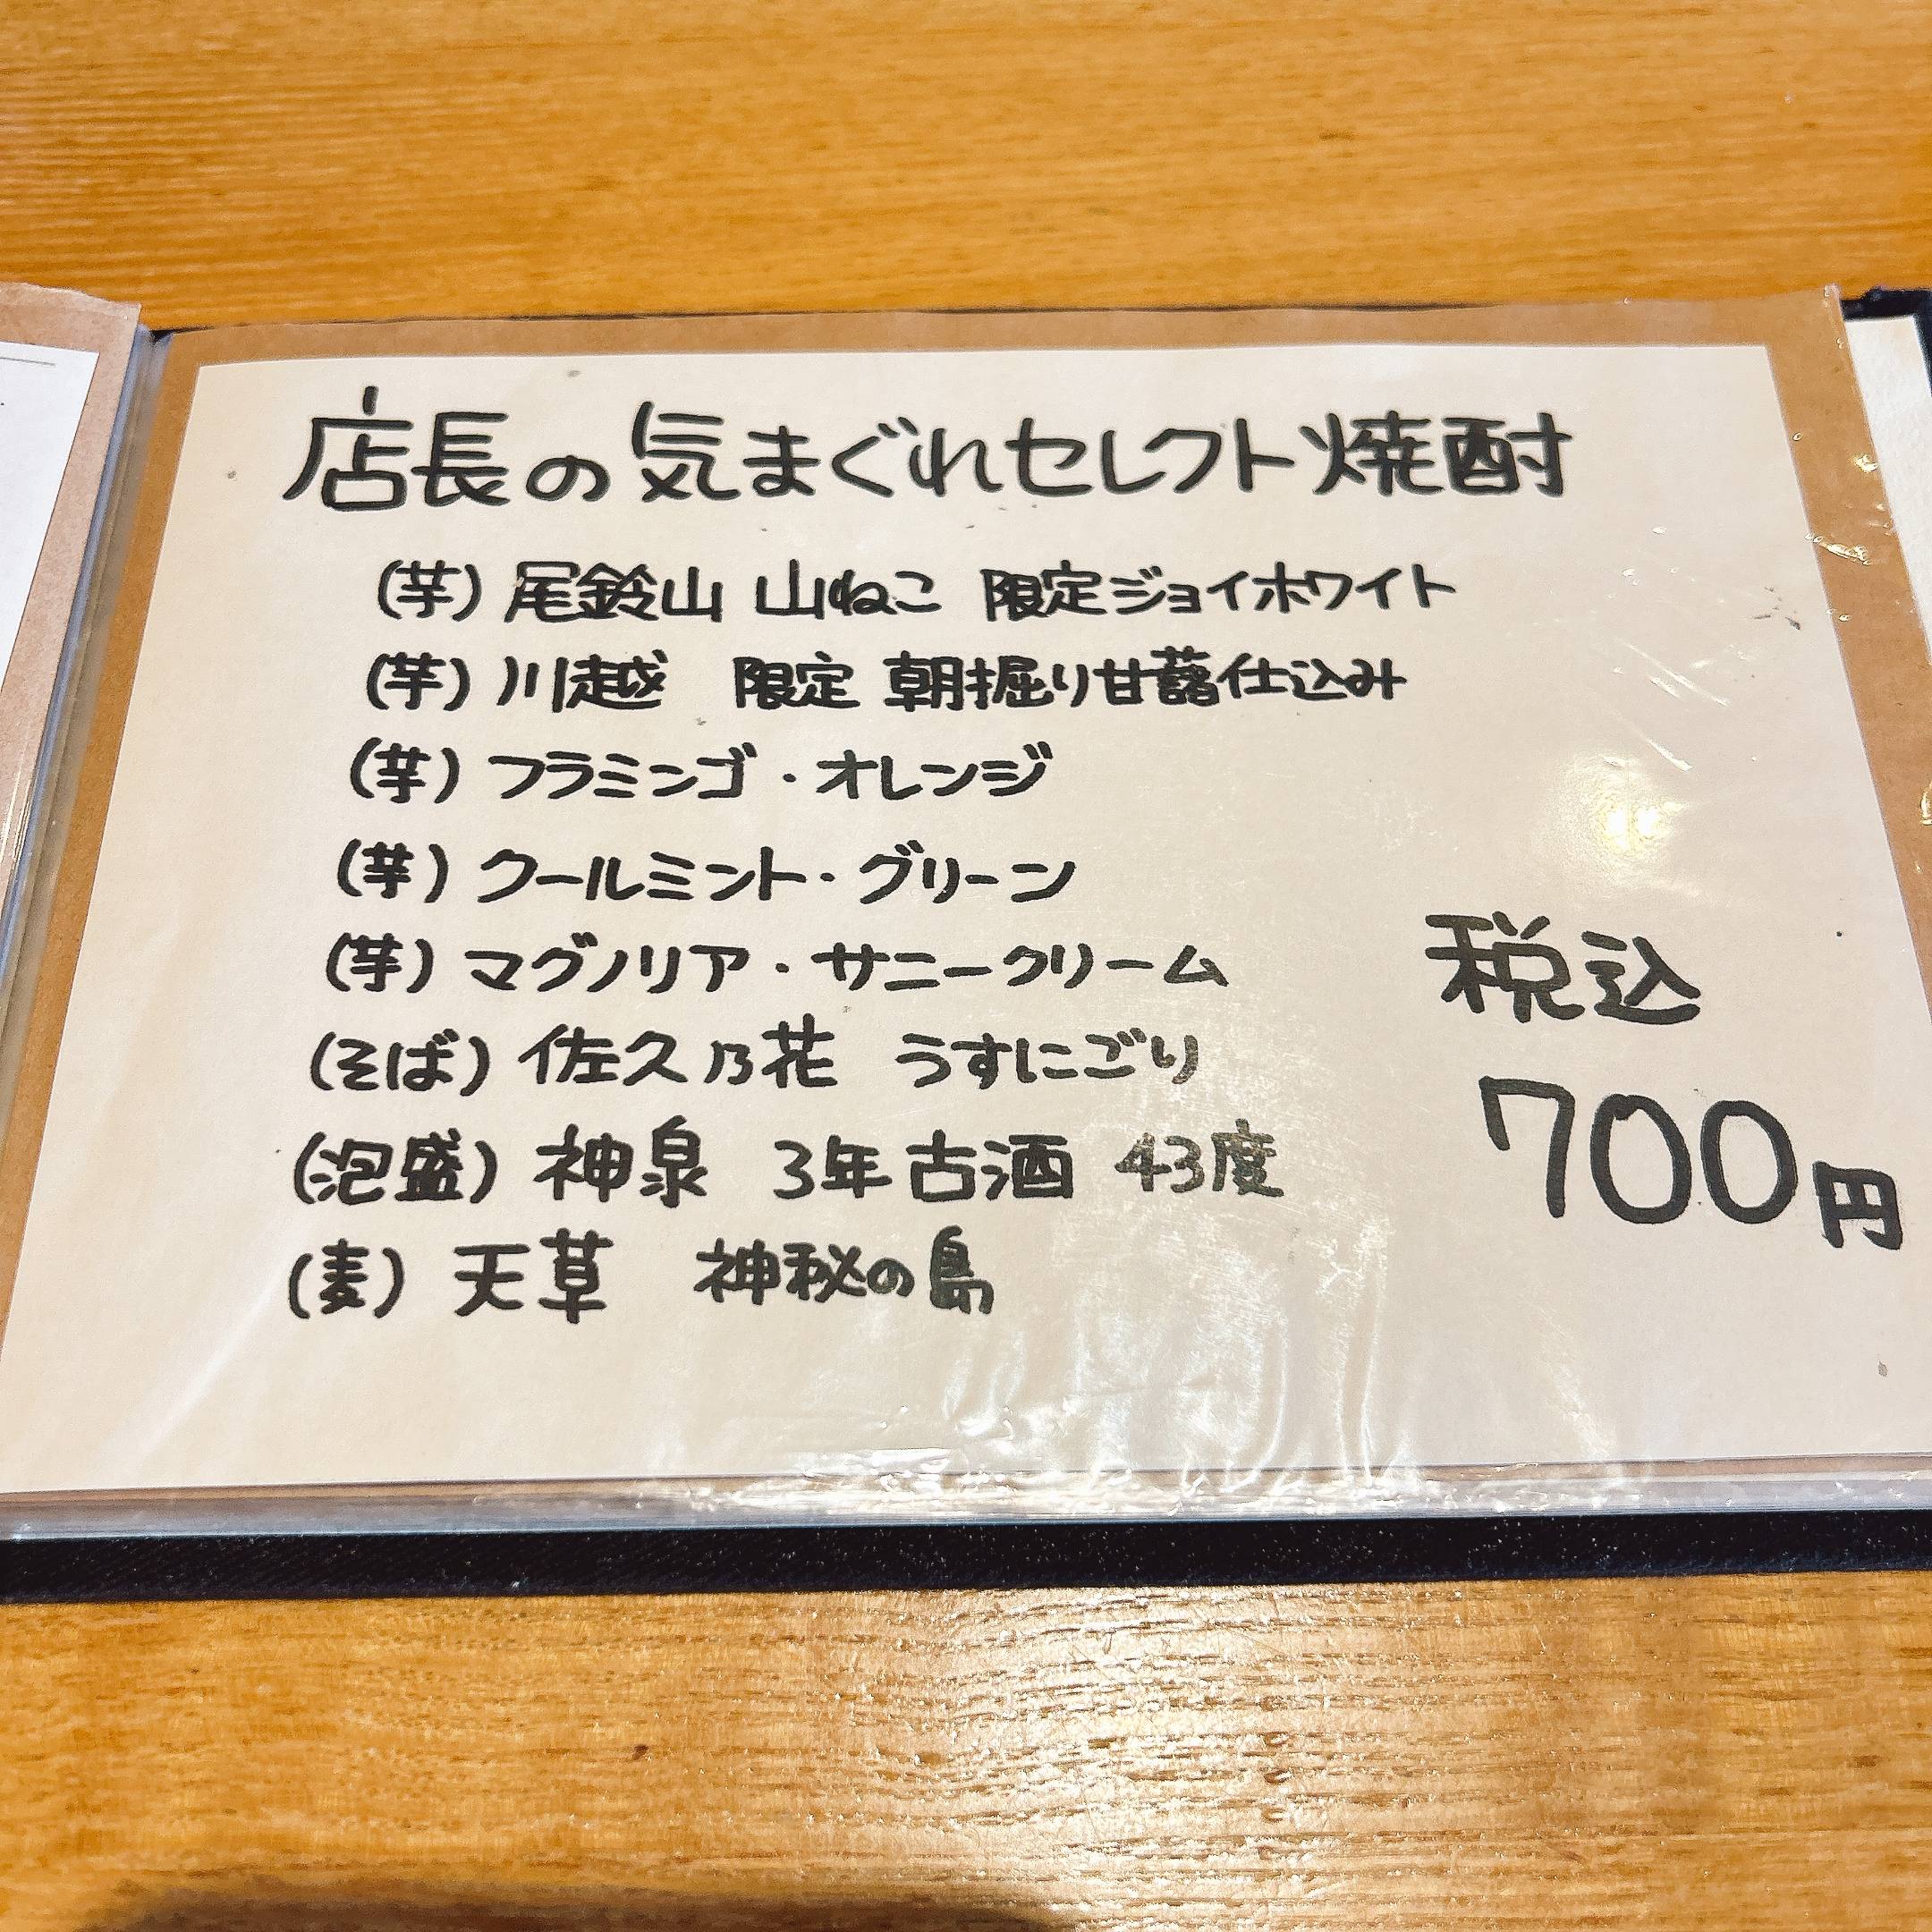 店長の気まぐれセレクト焼酎
(芋) 尾鈴山 山ねこ 限定ジョイホワイト
(芋) 川越 限定 朝掘り甘藷仕込み
(芋) フラミンゴ・オレンジ
(芋) クールミント・グリーン
(芋) マグノリア・サニークリーム
(そば) 佐久乃花 うすにごり
(泡盛) 神泉 3年古酒 43度
(麦) 天草 神秘の島
税込
700円